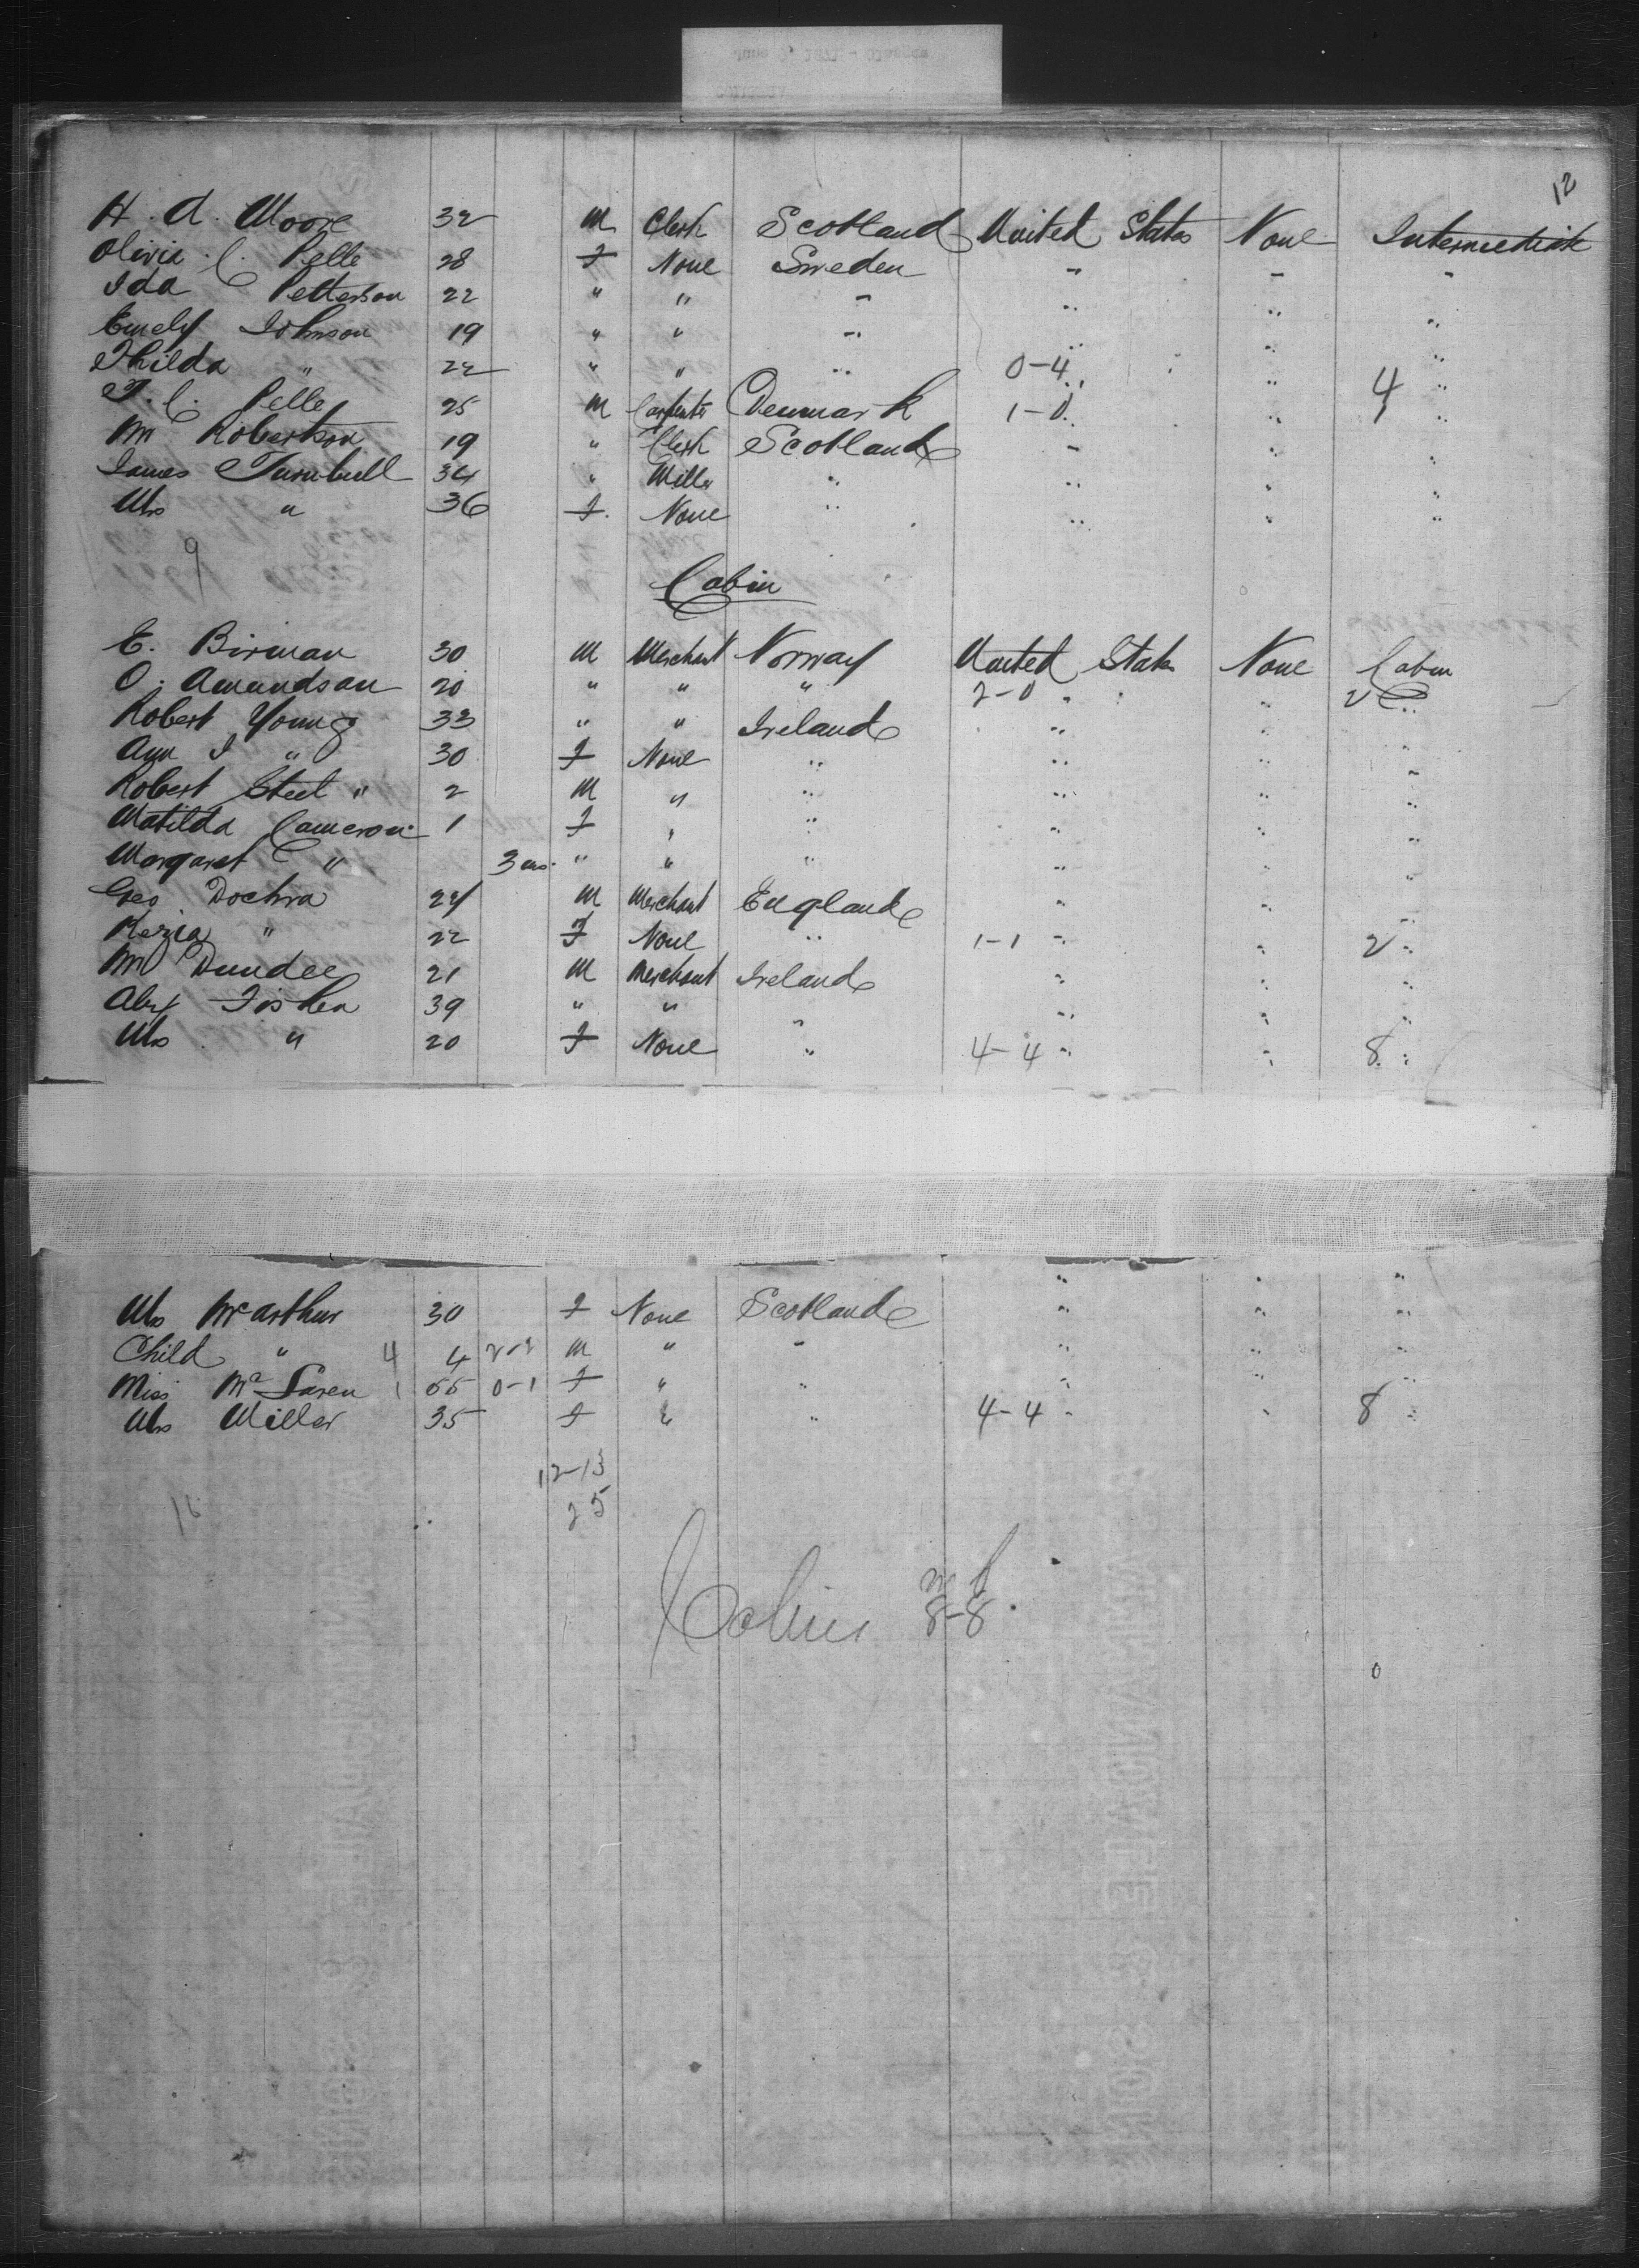 12
H. A. Moore 32 M Clerk Scotland United States None Intermediate
Olivia C. Pelle 28 F None Sweden " " "
Ida Petterson 22 " " " " " "
Emely Johnson 19 " " " " " "
Thilda " 22 " " " 0-4 " " 4 "
T. C. Pelle 25 M Carpenter Denmark 1-0 " " "
Wm Robertson 19 " Clerk Scotland " " "
James Turnbull 34 " Miller " " " "
Mrs " 36 F. None " " " "
9
Cabin
E. Birman 30 M Merchant Norway United States None Cabin
O. Amundsan 20 " " " 2-0 " " 2 "
Robert Young 33 " " Ireland " " "
Ann J " 30 F None " " " "
Robert Steel " 2 M " " " " "
Matilda Cameron " 1 F " " " " "
Margaret " " 3 ms. " " " " " "
Geo Dochra 24 M Merchant England " " "
Kezia " 22 F None " 1-1 " " 2 "
Wm Dundee 21 M Merchant Ireland " " "
Alex Fisher 39 " " " " " "
Mrs " 20 F None " 4-4 " " 8 "
" " "
Mrs McArthur 30 F None Scotland " " "
Child " 4 4 2-2 M " " " " "
Miss McLaren 1 55 0-1 F " " " " "
Mrs Miller 35 F " " 4-4 " " 8 "
12-13
16 25
m f
Cabin 8-8